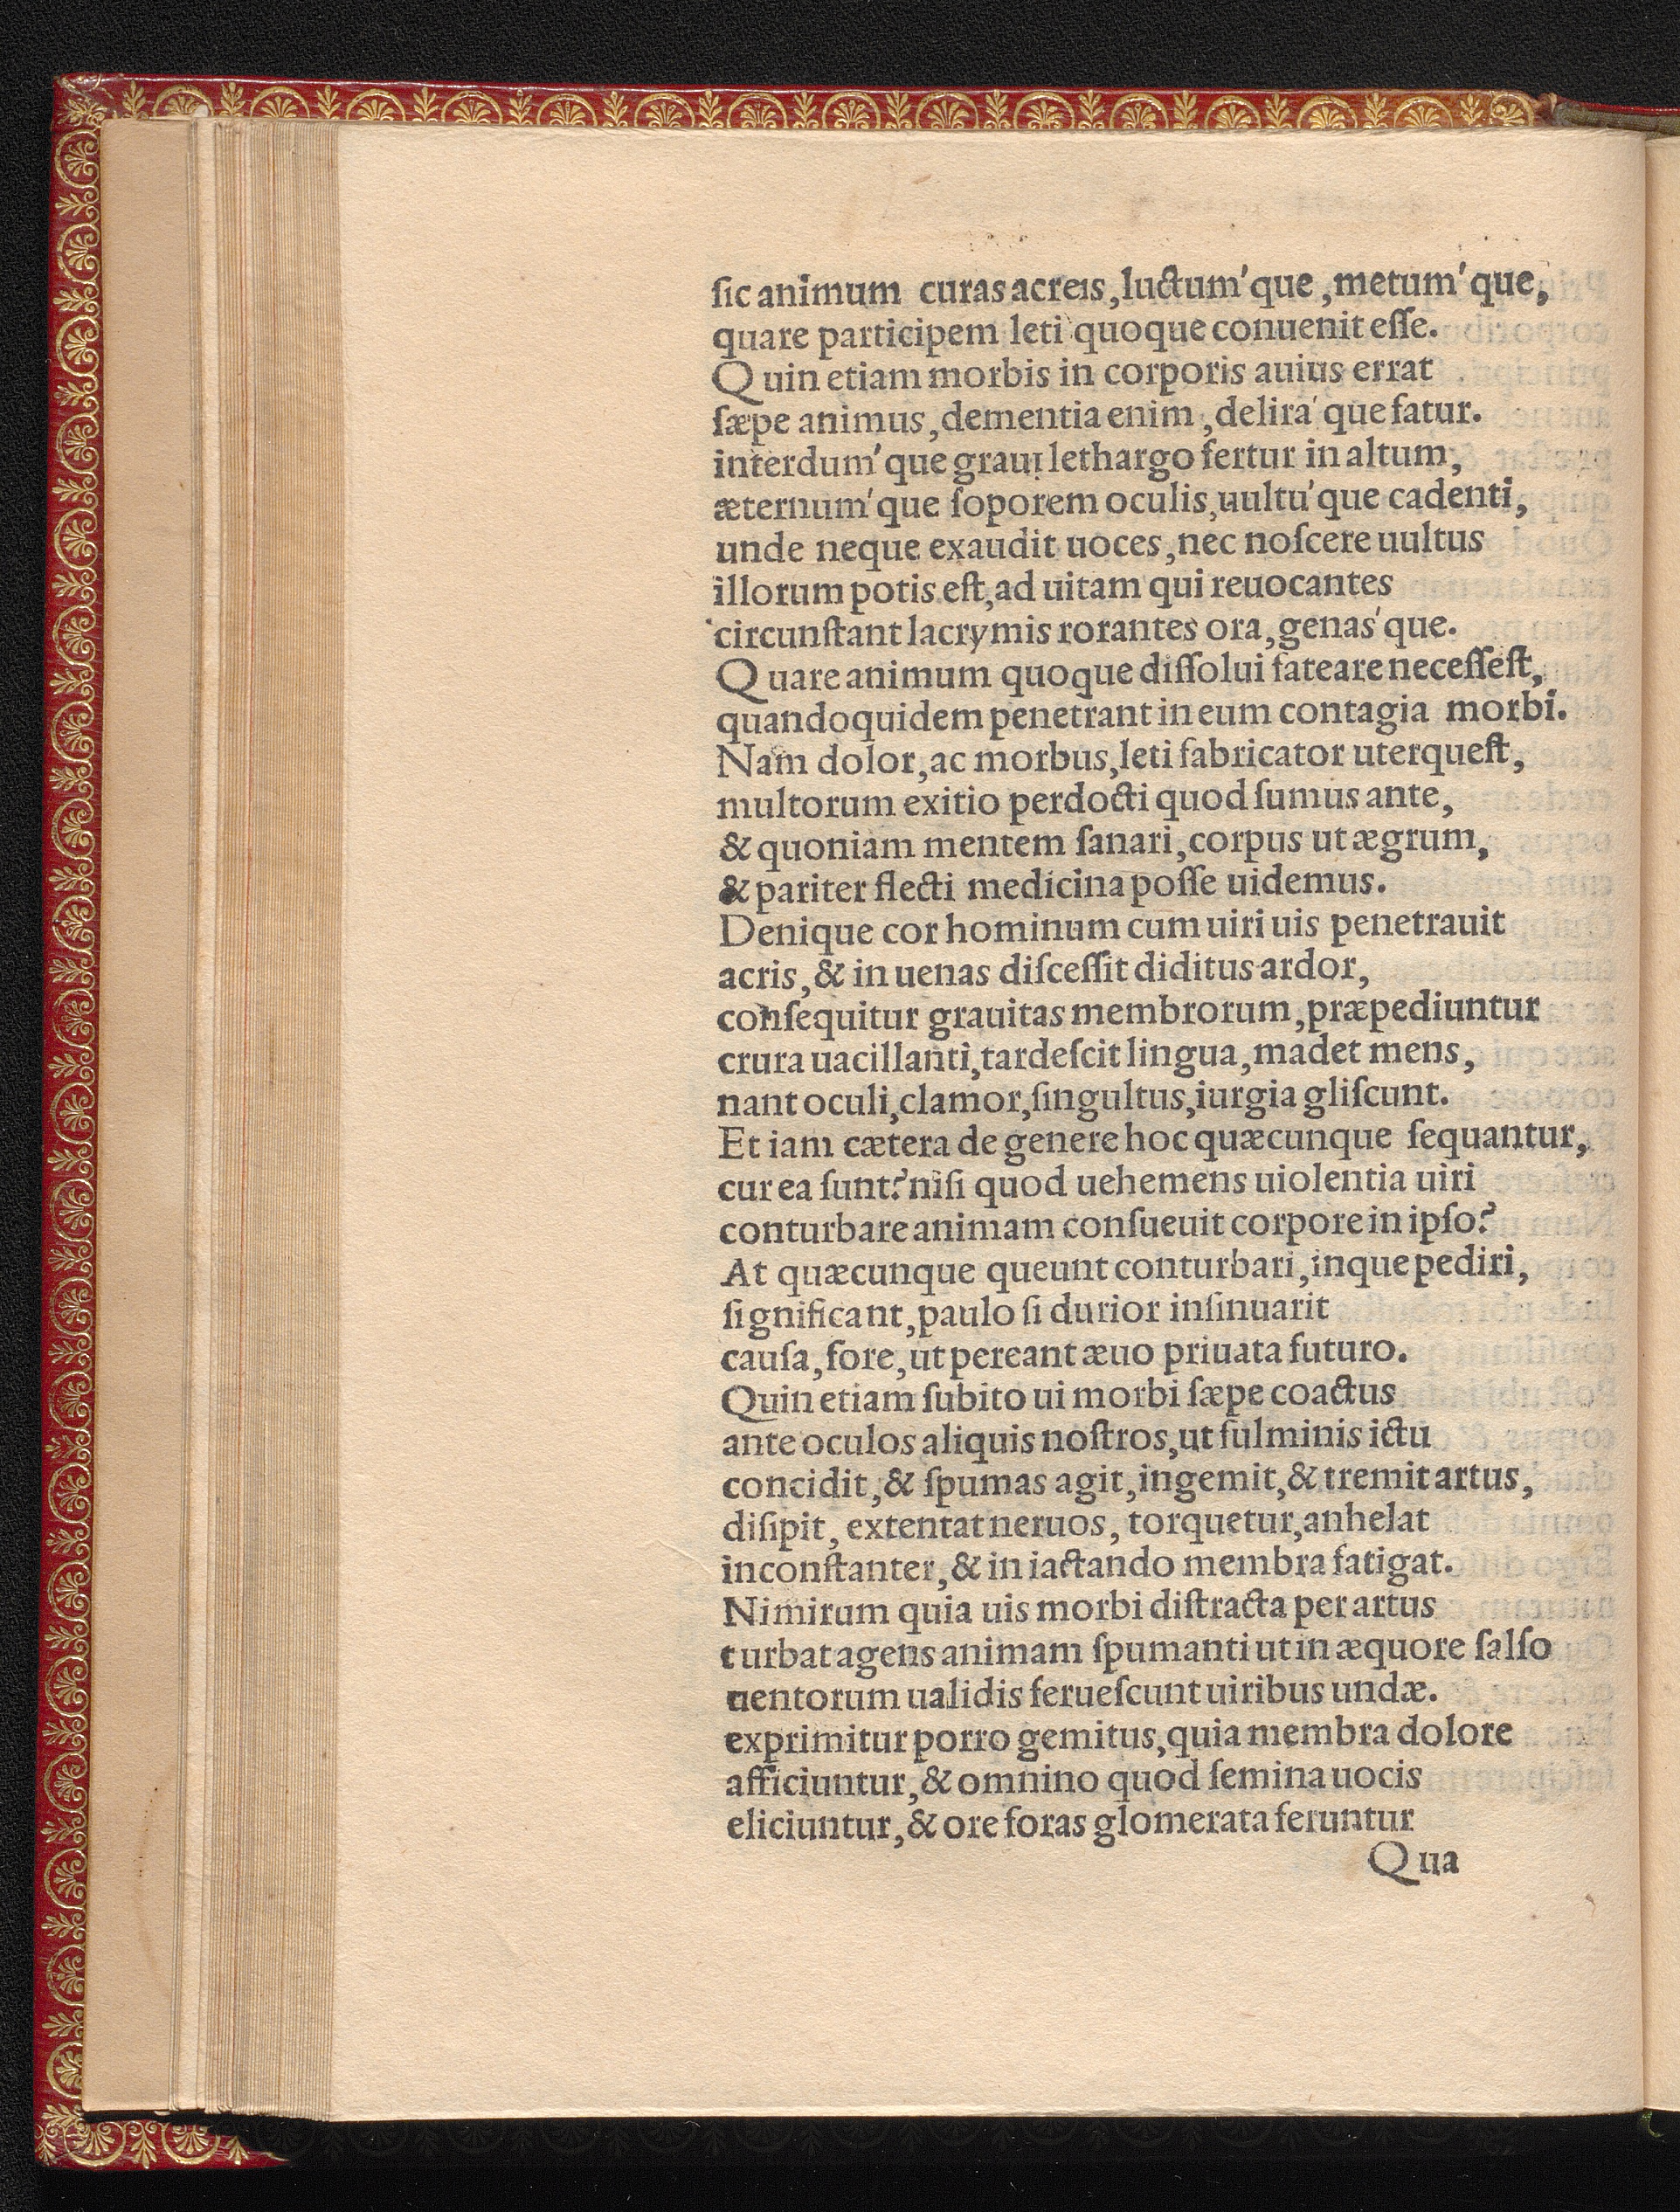 ſic animum curas acreis, luctum'que, metum'que,
quare participem leti quoque conuenit eſſe.
Quin etiam morbis in corporis auius errat
ſæpe animus, dementia enim, delira'que fatur.
interdum'que graui lethargo fertur in altum,
æternum'que ſoporem oculis, uultu'que cadenti,
unde neque exaudit uoces, nec noſcere uultus
illorum potis eſt, ad uitam qui reuocantes
circunſtant lacrymis rorantes ora, genas'que.
Quare animum quoque diſſolui fateare neceſſeſt,
quandoquidem penetrant in eum contagia morbi.
Nam dolor, ac morbus, leti fabricator uterqueſt,
multorum exitio perdocti quod ſumus ante,
& quoniam mentem ſanari, corpus ut ægrum,
& pariter flecti medicina poſſe uidemus.
Denique cor hominum cum uiri uis penetrauit
acris, & in uenas diſceſſit diditus ardor,
conſequitur grauitas membrorum, præpediuntur
crura uacillanti, tardeſcit lingua, madet mens,
nant oculi, clamor, ſingultus, iurgia gliſcunt.
Et iam cætera de genere hoc quæcunque ſequantur,
cur ea ſunt? niſi quod uehemens uiolentia uiri
conturbare animam conſueuit corpore in ipſo?
At quæcunque queunt conturbari, inque pediri,
ſignificant, paulo ſi durior inſinuarit
cauſa, fore, ut pereant æuo priuata futuro.
Quin etiam ſubito ui morbi ſæpe coactus
ante oculos aliquis noſtros, ut fulminis ictu
concidit, & ſpumas agit, ingemit, & tremit artus,
diſipit, extentat neruos, torquetur, anhelat
inconſtanter, & in iactando membra fatigat.
Nimirum quia uis morbi diſtracta per artus
turbat agens animam ſpumanti ut in æquore ſalſo
uentorum ualidis ferueſcunt uiribus undæ.
exprimitur porro gemitus, quia membra dolore
afficiuntur, & omnino quod ſemina uocis
eliciuntur, & ore foras glomerata feruntur
Qua